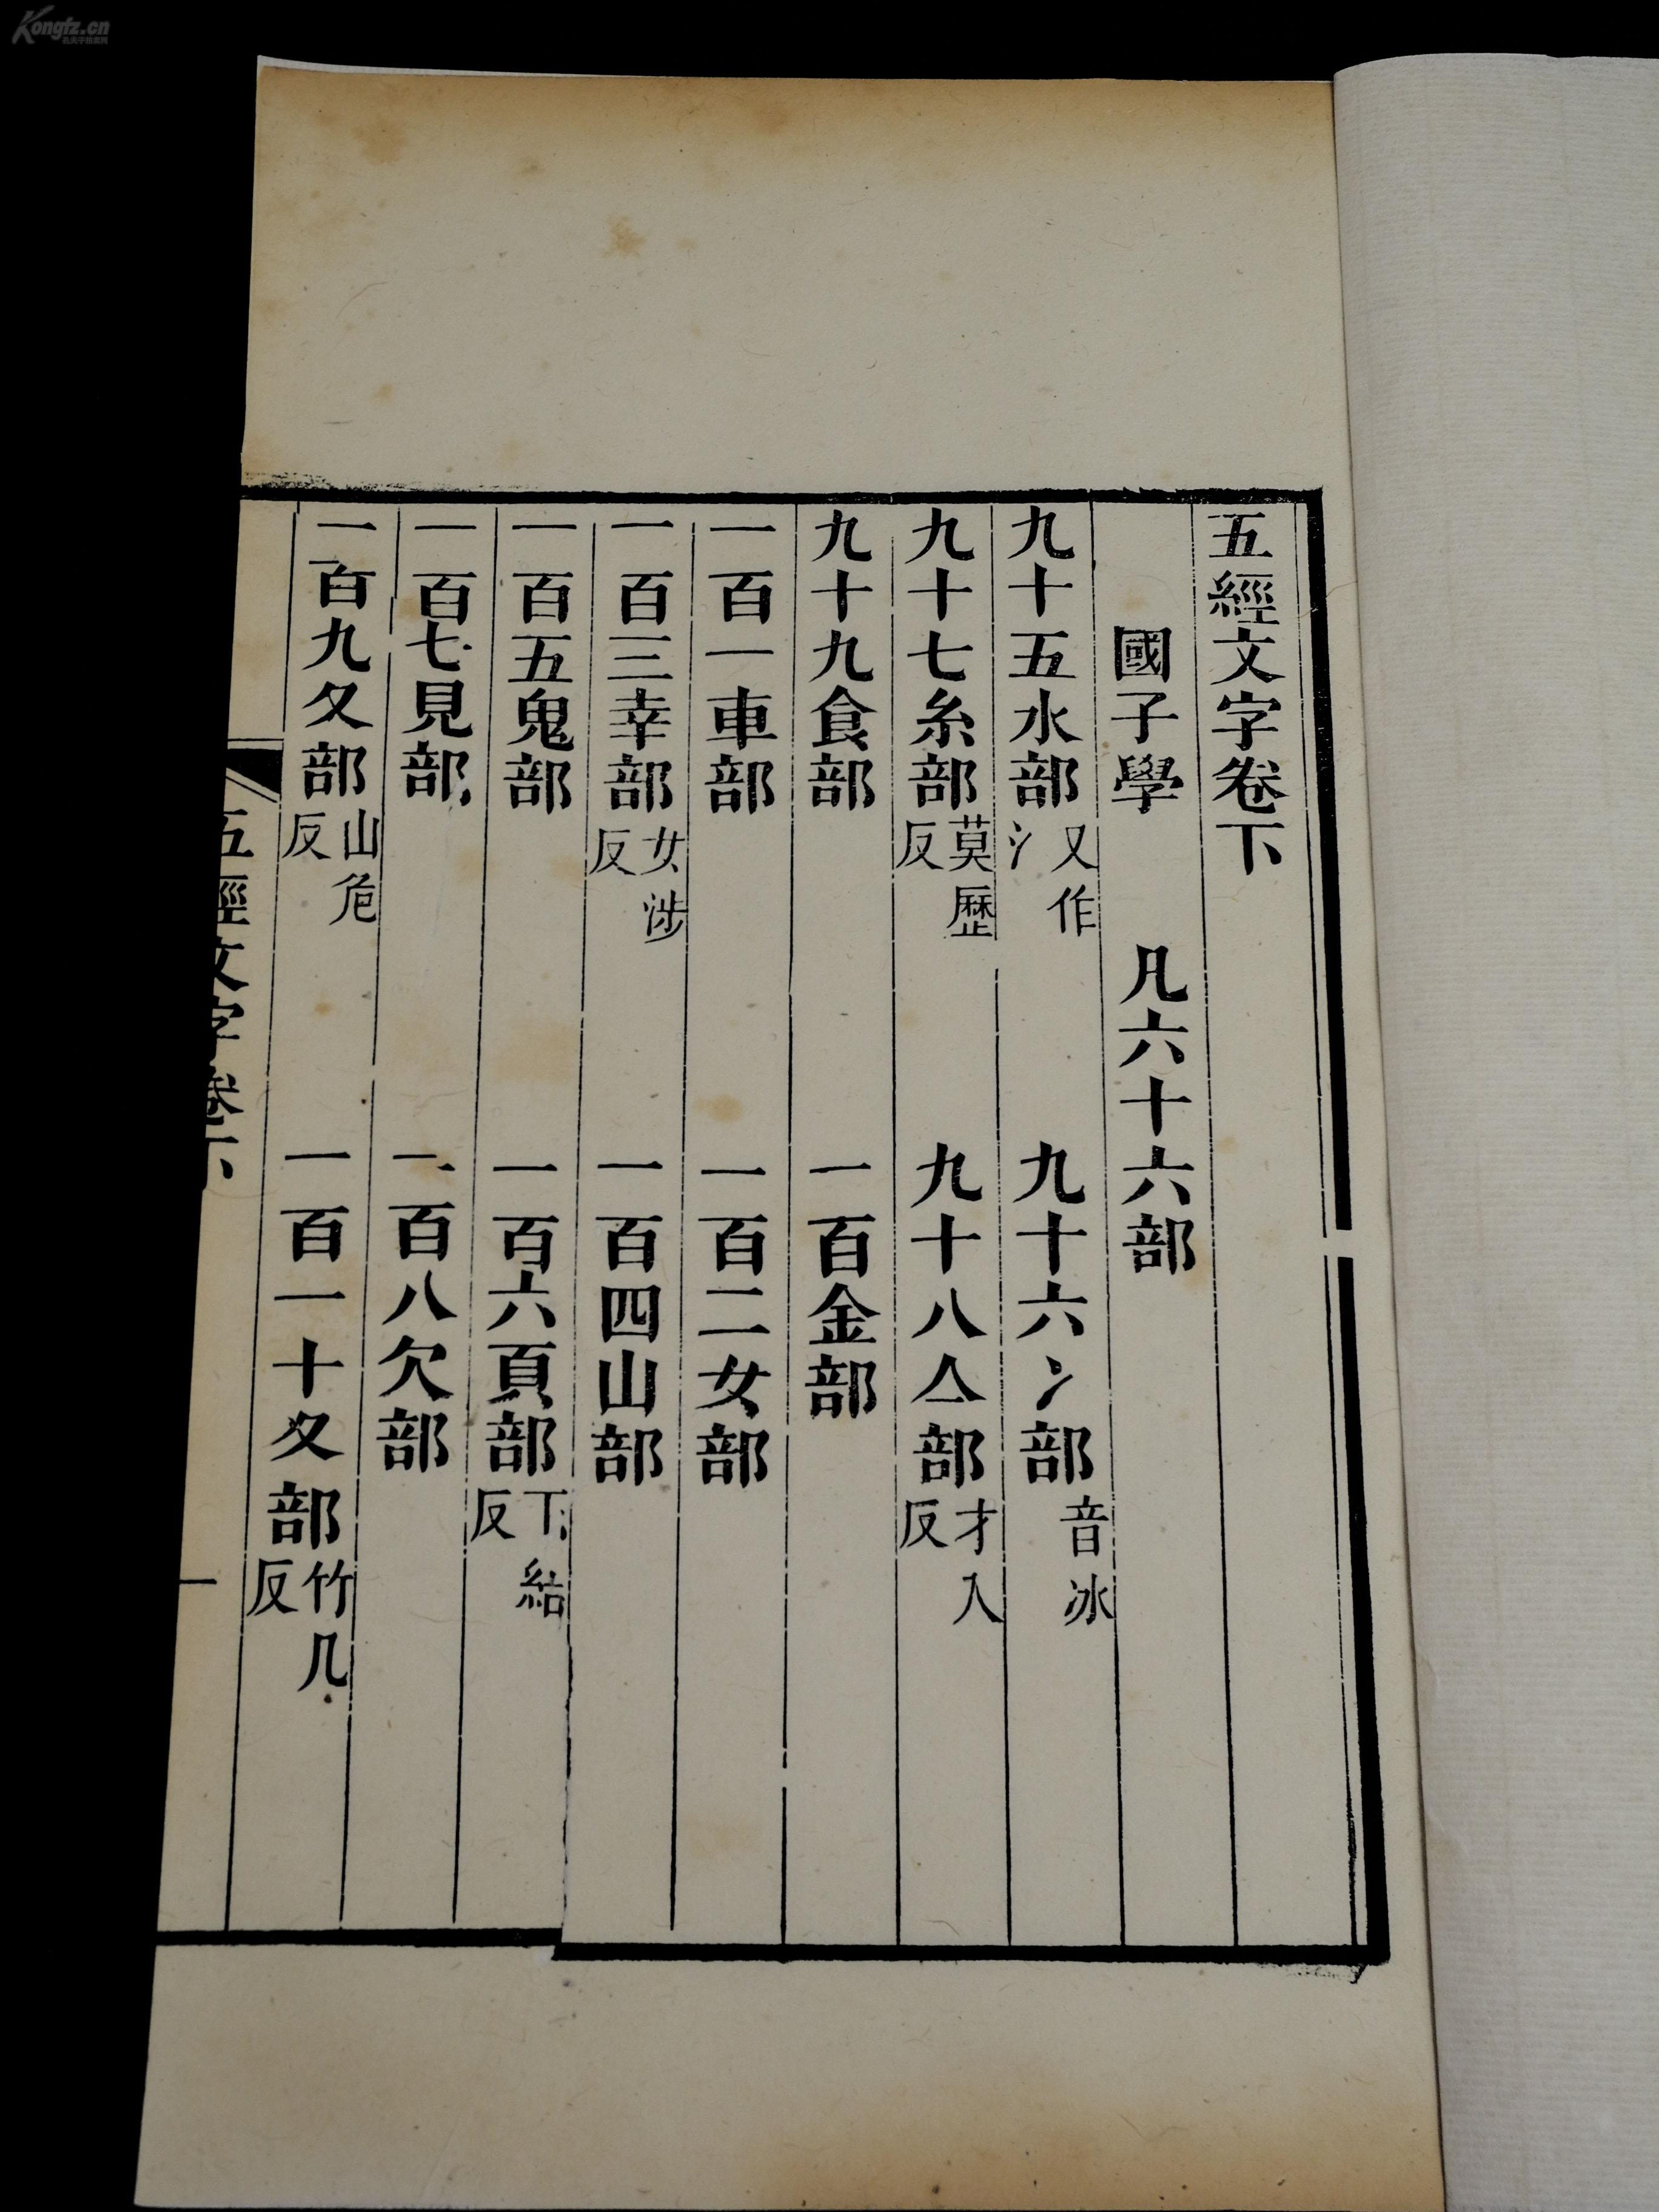 五經文字卷下
國子學 凡六十六部
九十五水部 又作氵 九十六冫部 音冰
九十七糸部 莫歷反 九十八亼部 才入反
九十九食部 一百金部
一百一車部 一百二女部
一百三幸部 女涉反 一百四山部
一百五鬼部 一百六頁部 下結反
一百七見部 一百八欠部
一百九夂部 山危反 一百一十夂部 竹几反
五經文字卷下
一
Kongfz.cn